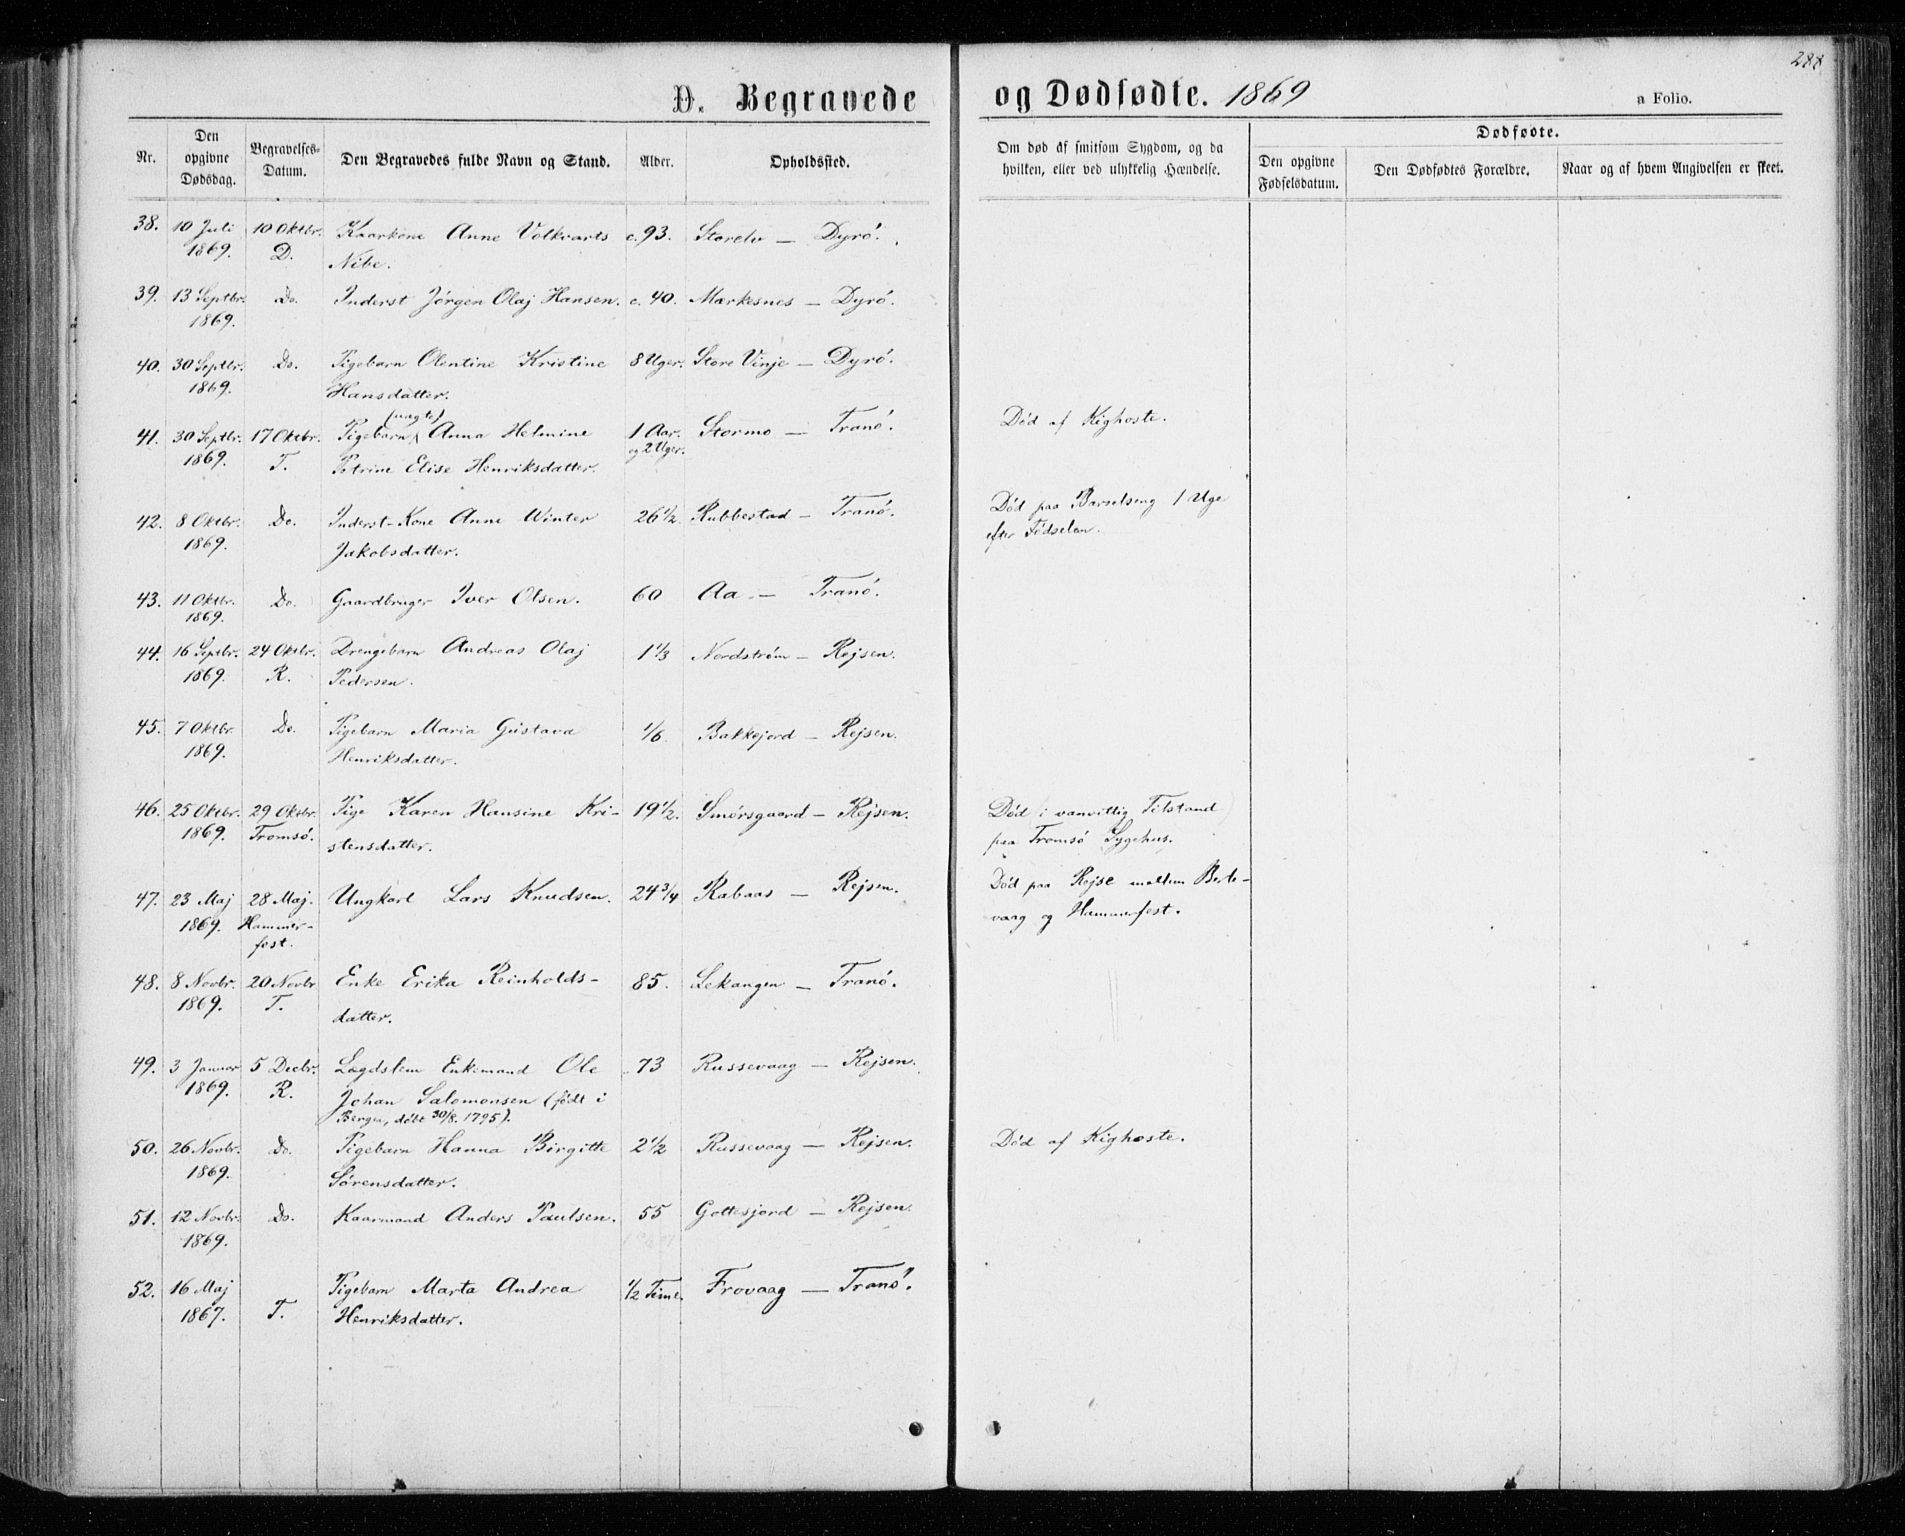 288
D. Begravede og Dødfødte. 1869
a Folio.
Nr.
Den opgivne Dødsdag.
Begravelses-Datum.
Den Begravedes fulde Navn og Stand.
Alder.
Opholdssted.
Om død af smitsom Sygdom, og da hvilken, eller ved ulykkelig Hændelse.
Dødfødte.
Den opgivne Fødselsdatum.
Den Dødfødtes Forældre.
Naar og af hvem Angivelsen er skeet.
38. 10 Juli 10 Oktbr. Kaarkone Anne Volkvarts c. 93. Storelv — Dyrö.
1869. D. Nibe.
39. 13 Septbr. Do. Inderst Jörgen Olaj Hansen. c. 40. Mærkesnes — Dyrö.
1869.
40. 30 Septbr. Do. Pigebarn Olentine Kristine 8 Uger. Store Vinje — Dyrö.
1869. Hansdatter.
(uægte)
41. 30 Septbr. 17 Oktbr. Pigebarn Anna Helmine 1 Aar. Stormo — Tranö. Död af Kighoste.
1869. T. Petrine Elise Henriksdatter. og 2 Uger.
42. 8 Oktbr. Do. Inderst-Kone Anne Winter 26 1/2 Rubbestad — Tranö. Död paa Barselseng 1 Uge
1869. Jakobsdatter. efter Födselen.
43. 11 Oktbr. Do. Gaardbruger Iver Olsen. 60 Aa — Tranö.
1869.
44. 16 Septbr. 24 Oktbr. Drengebarn Andreas Olaj 1 1/3 Nordström — Rejsen.
1869. R. Pedersen.
45. 7 Oktbr. Do. Pigebarn Maria Gustava 1/6 Bakkejord — Rejsen.
1869. Henriksdatter.
46. 25 Oktbr. 29 Oktbr. Pige Karen Hansine Kri- 19 1/2. Smörsgaard — Rejsen. Död i vanvittig Tilstand
1869. Tromsö. stensdatter. paa Tromsö Sygehus.
47. 23 Maj 28 Maj. Ungkarl Lars Knudsen. 24 3/4 Rabaas — Rejsen. Död paa Rejse mellem Berle-
1869. Hammer- vaag og Hammerfest.
fest.
48. 8 Novbr. 20 Novbr Enke Erika Reinholds- 85. Lekangen — Tranö.
1869. T. datter.
49. 3 Januar 5 Decbr. Lægdslem Enkemand Ole 73 Russevaag — Rejsen.
1869. R. Johan Salomonsen (födt i
Bergen, döbt 30/8. 1795).
50. 26 Novbr. Do. Pigebarn Hanna Birgitte 2 1/2 Russevaag — Rejsen. Död af Kighoste.
1869. Sörensdatter.
51. 12 Novbr. Do. Kaarmand Anders Paulsen. 55 Gottesjord — Rejsen.
1869.
52. 16 Maj Pigebarn Marta Andrea 1/2 Time. Frovaag — Tranö.
1867. T. Henriksdatter.